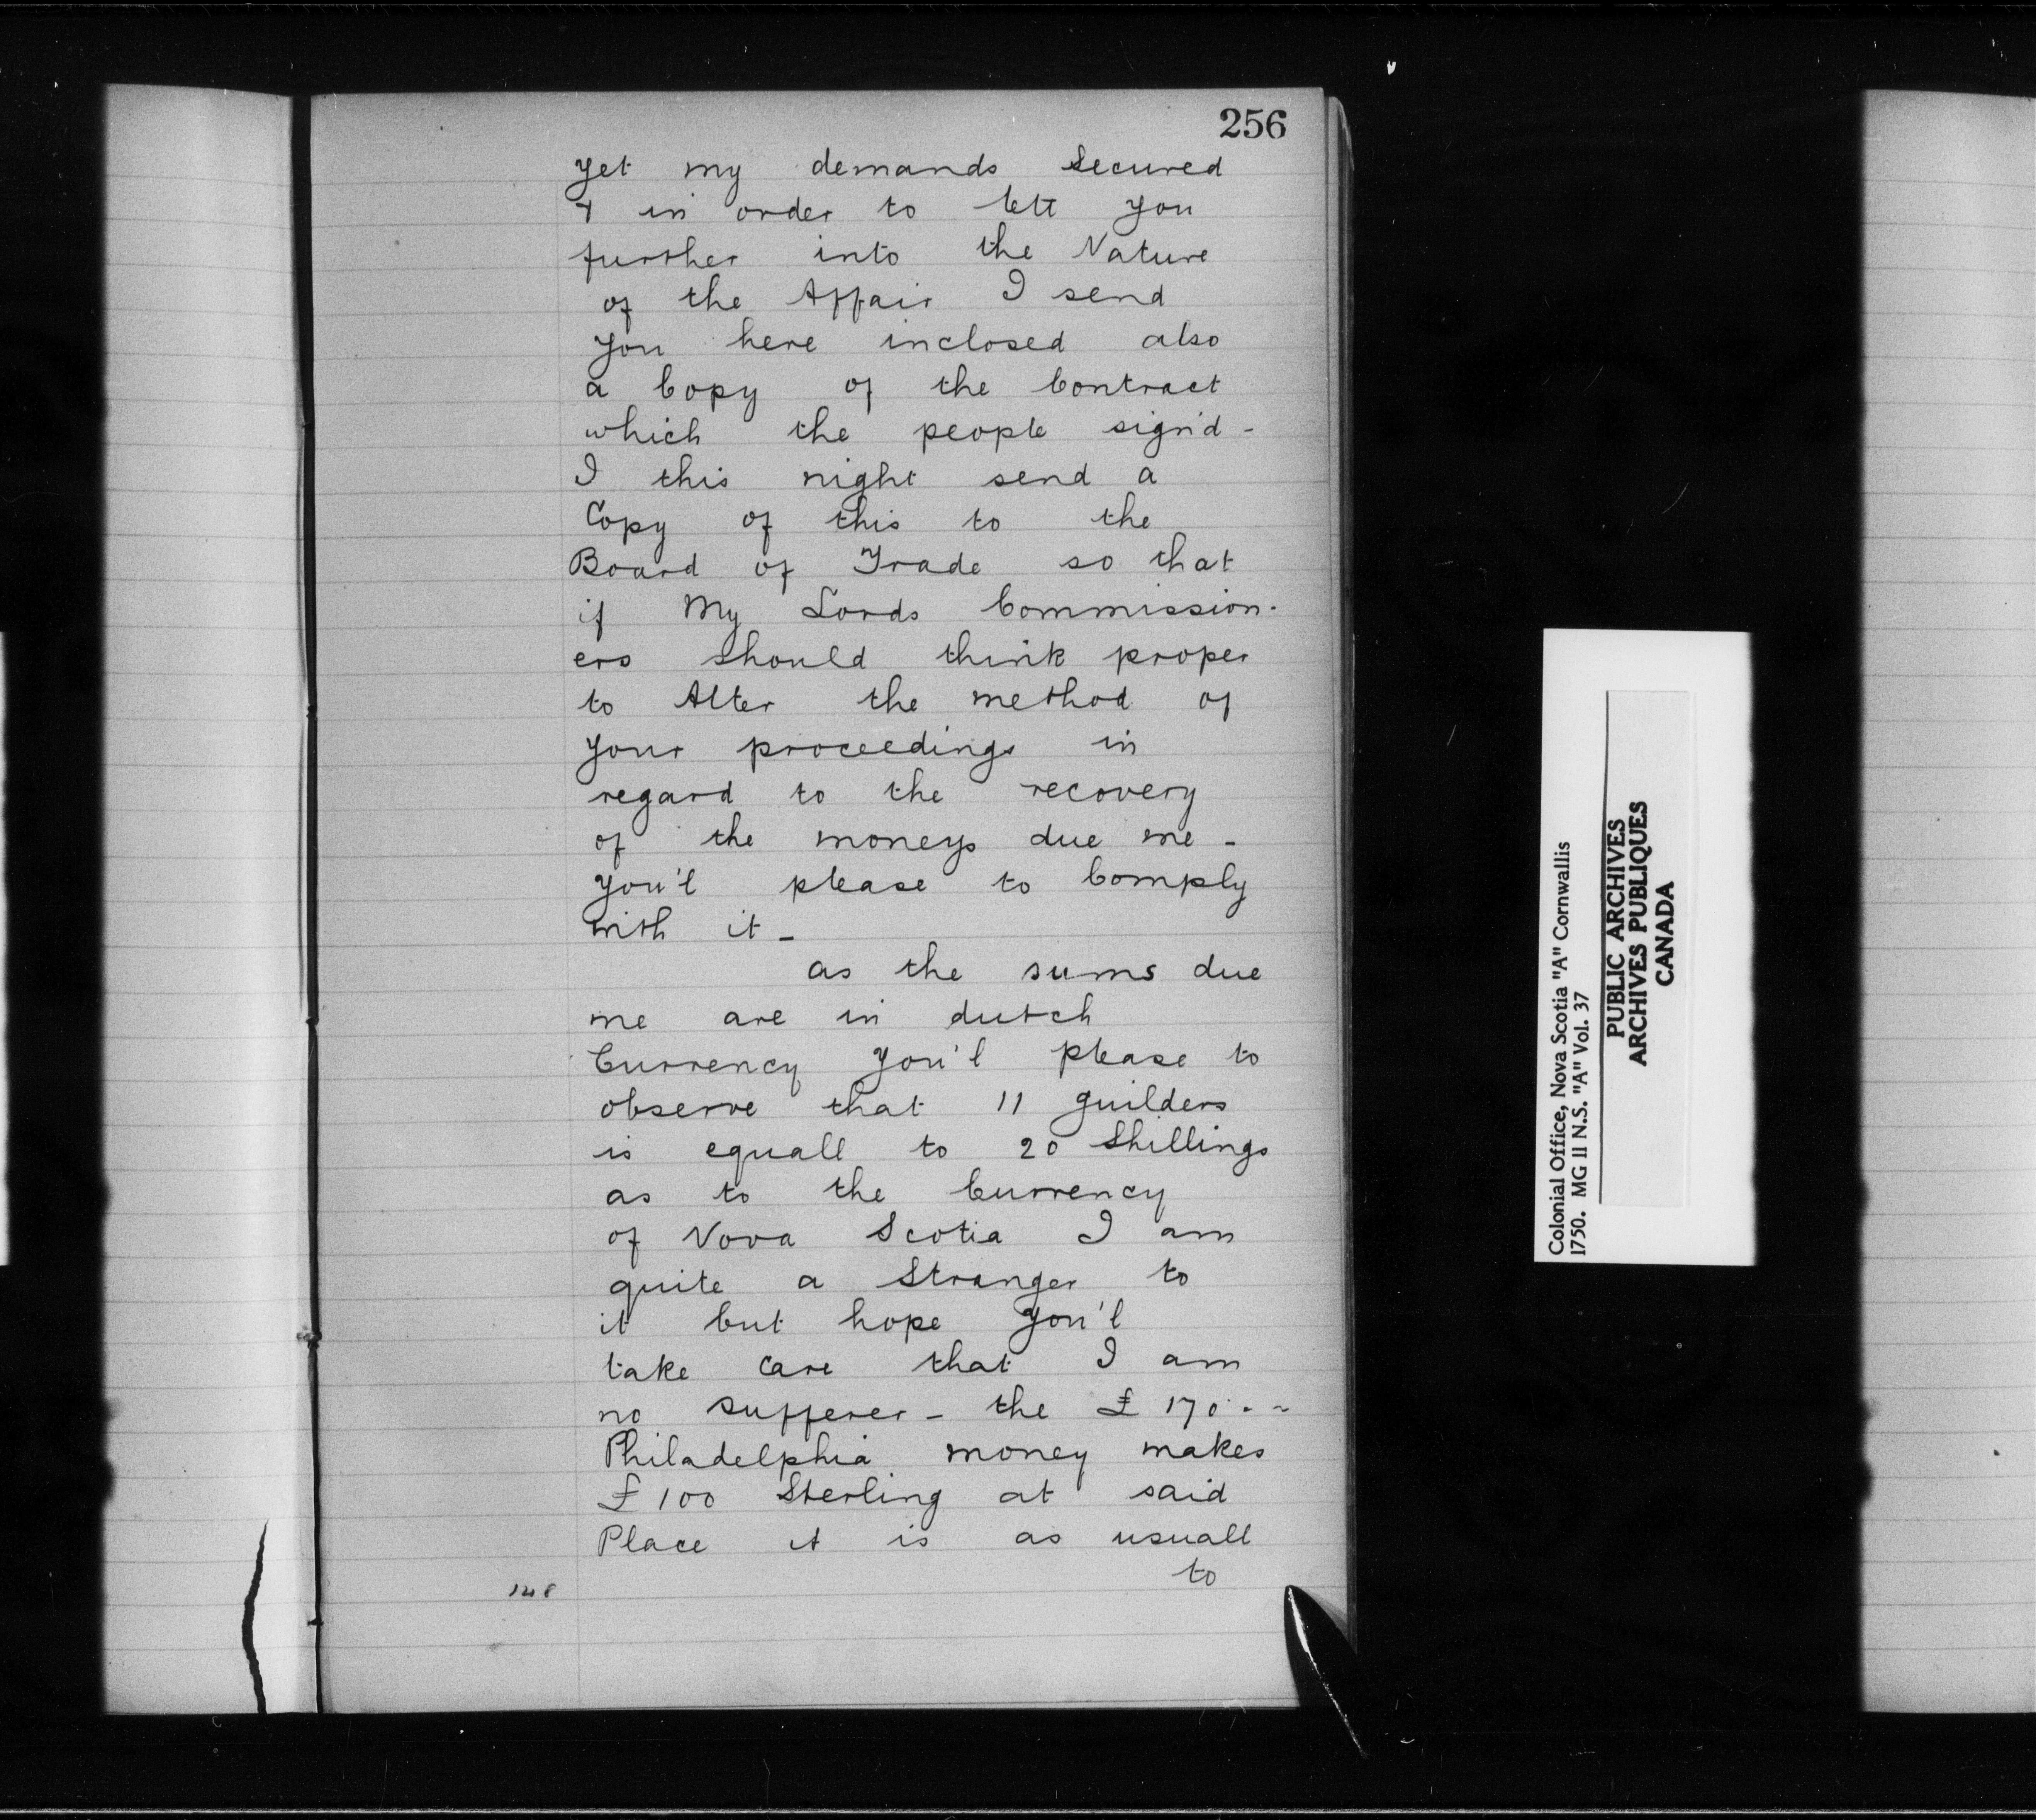 256
yet my demands secured
& in order to lett you
further into the Nature
of the Affair I send
you here inclosed also
a Copy of the Contract
which the people sign'd -
I this night send a
Copy of this to the
Board of Trade so that
if My Lords Commission-
ers should think proper
to Alter the method of
your proceedings in
regard to the recovery
of the moneys due me -
you'l please to Comply
with it -
as the sums due
me are in dutch
Currency you'l please to
observe that 11 guilders
is equall to 20 Shillings
as to the Currency
of Nova Scotia I am
quite a Stranger to
it but hope you'l
take care that I am
no sufferer - the £ 170 . -
Philadelphia money makes
£ 100 Sterling at said
Place it is as usuall
to
148
Colonial Office, Nova Scotia "A" Cornwallis
1750. MG II N.S. "A" Vol. 37
PUBLIC ARCHIVES
ARCHIVES PUBLIQUES
CANADA